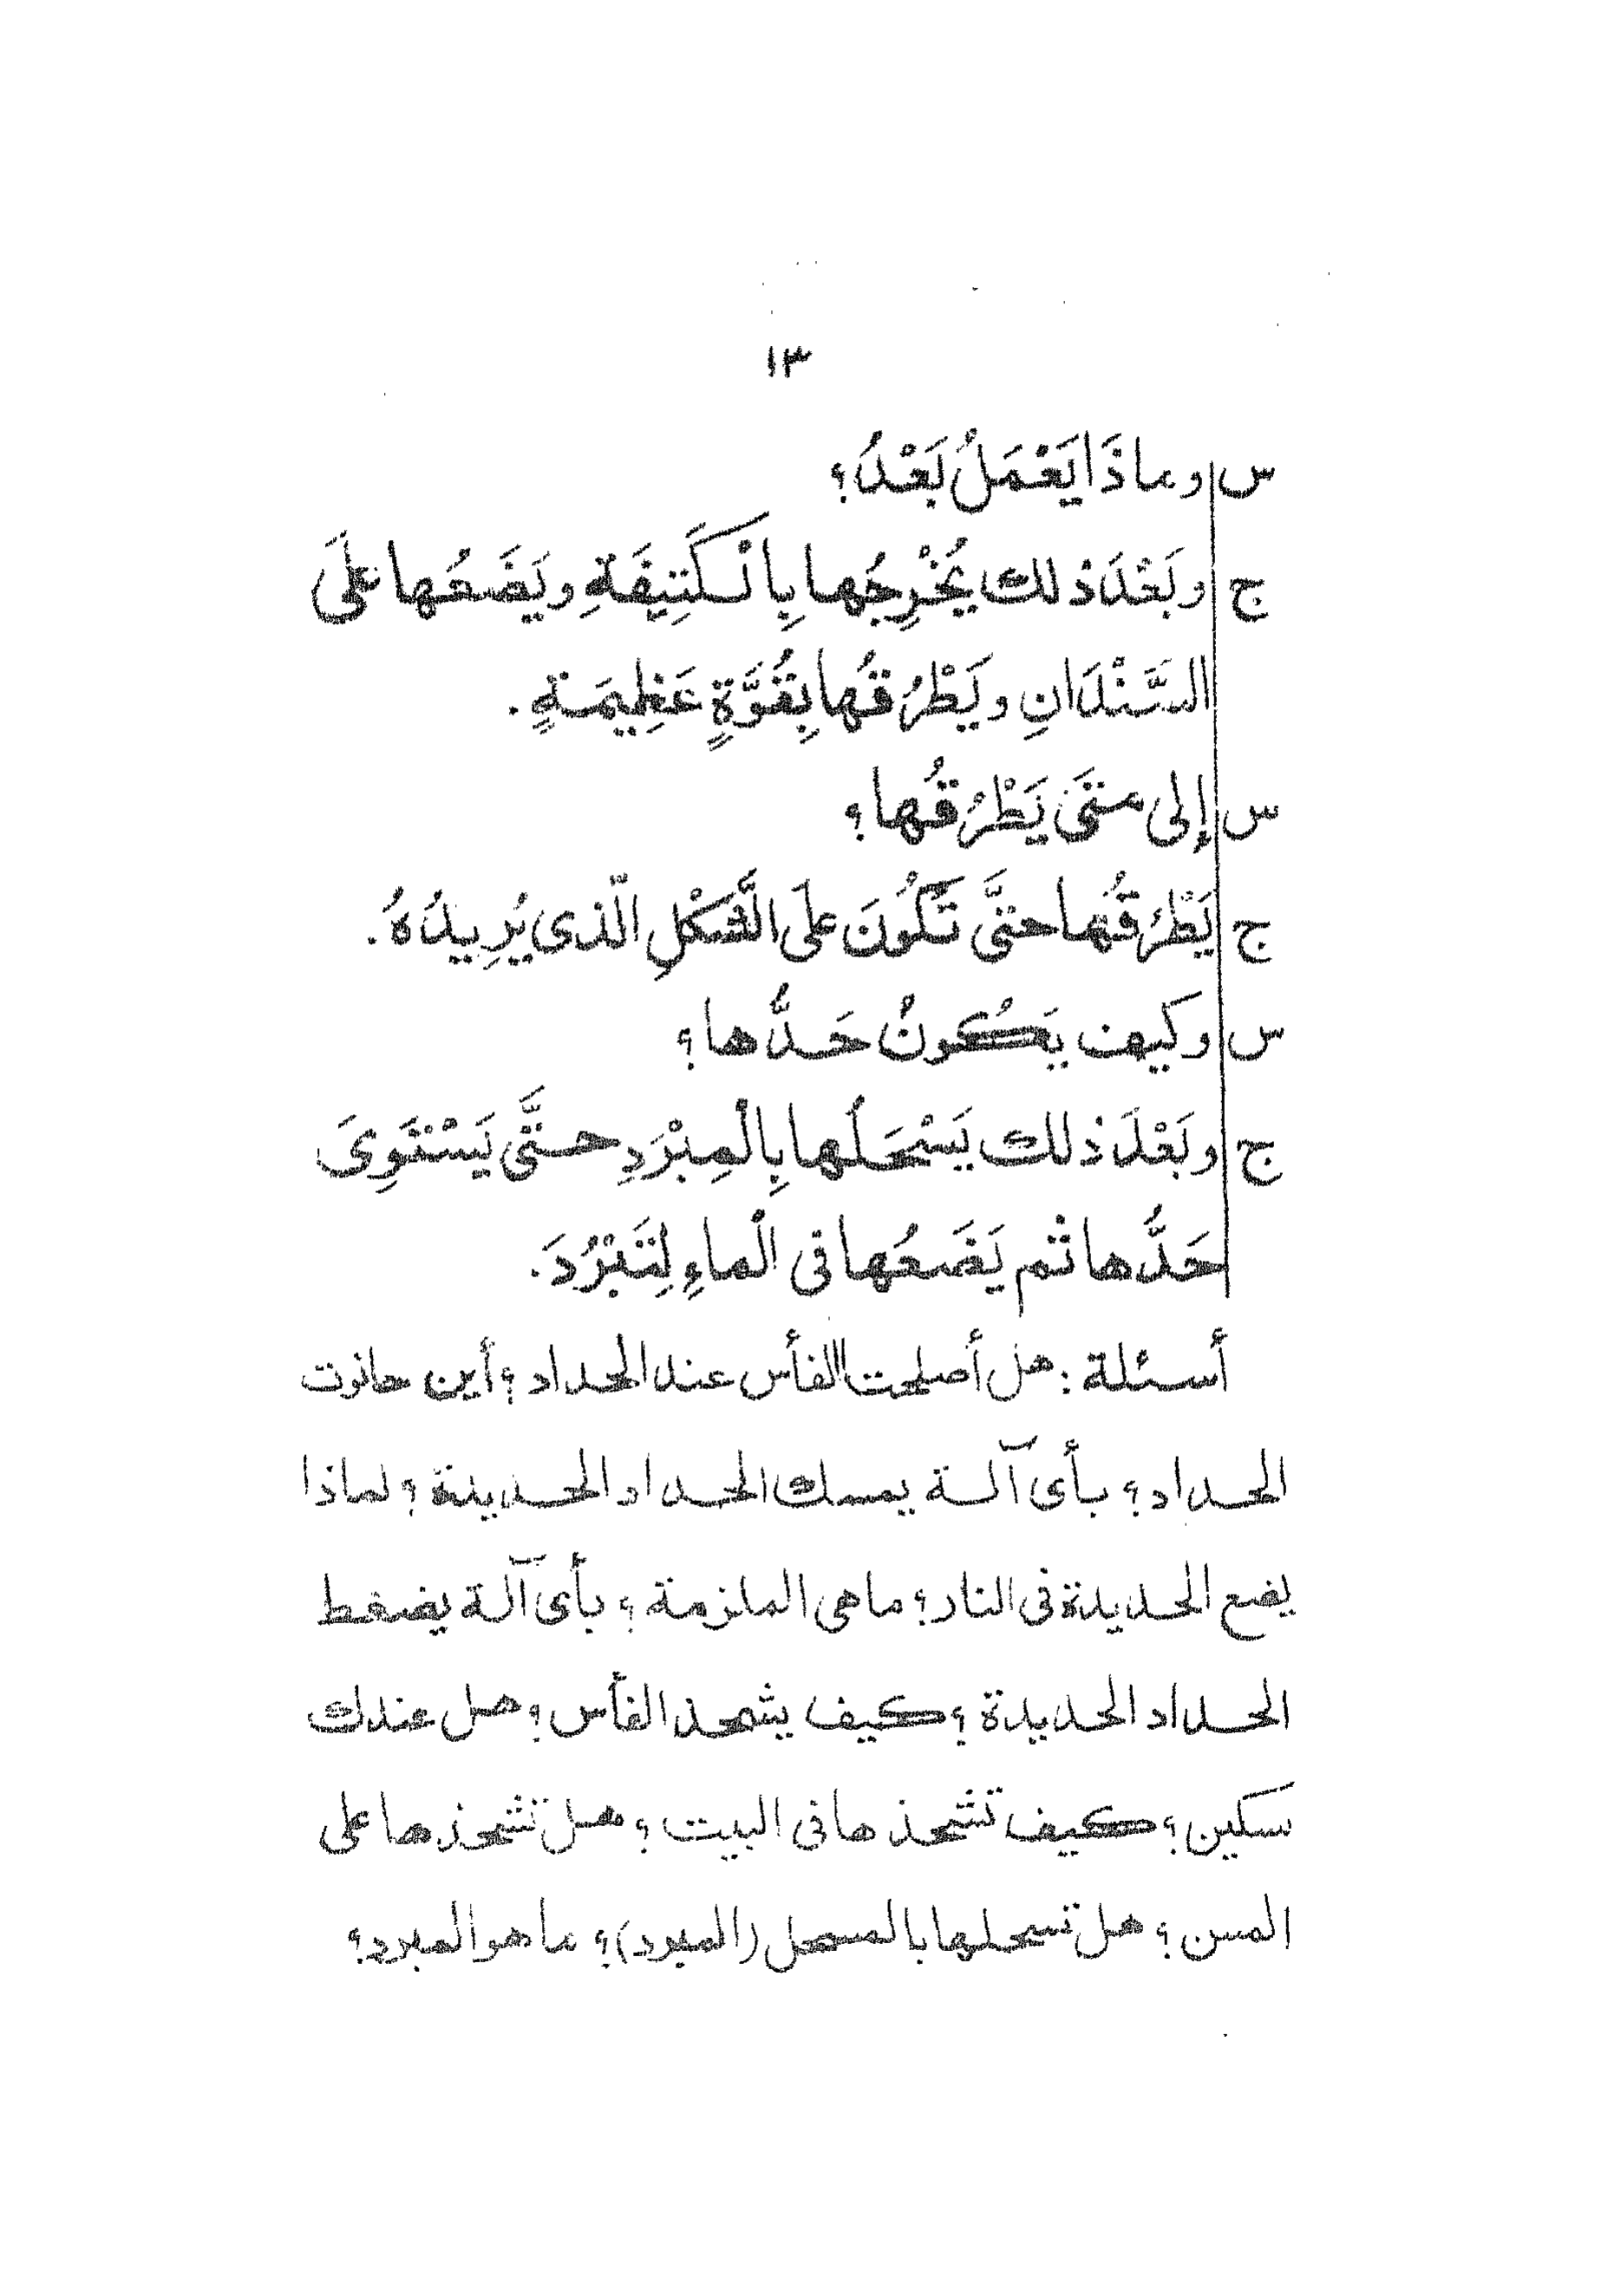 ١٣
س وماذَا يَعْمَلُ بَعْدُ؟
ج وبَعْدَ ذلك يُخْرِجُها بِالْكَتِيفَةِ ويَضَعُها عَلَى
السَّنْدَانِ ويَطْرُقُها بِقُوَّةٍ عَظِيمَةٍ .
س إلى متَى يَطْرُقُها؟
ج يَطْرُقُها حتَّى تَكُونَ علَى الشَّكْلِ الّذى يُرِيدُهُ .
س وكيف يَكُونُ حَدُّها؟
ج وبَعْدَ ذلك يَسْحَلُها بِالْمِبْرَدِ حتَّى يَسْتَوِىَ
حَدُّها ثم يَضَعُها فى الْماءِ لِتَبْرُدَ.
أسئلة : هل أصلحت الفأس عند الحداد ؟ أين حانوت
الحداد ؟ بأى آلة يمسك الحداد الحديدة ؟ لماذا
يضع الحديدة فى النار ؟ ما هى الملزمة ؟ بأى آلة يضغط
الحداد الحديدة ؟ كيف يشحذ الفأس ؟ هل عندك
سكين ؟ كيف تشحذها فى البيت ؟ هل تشحذها على
المسن ؟ هل تسحلها بالمسحل (المبرد) ؟ ما هو المبرد؟